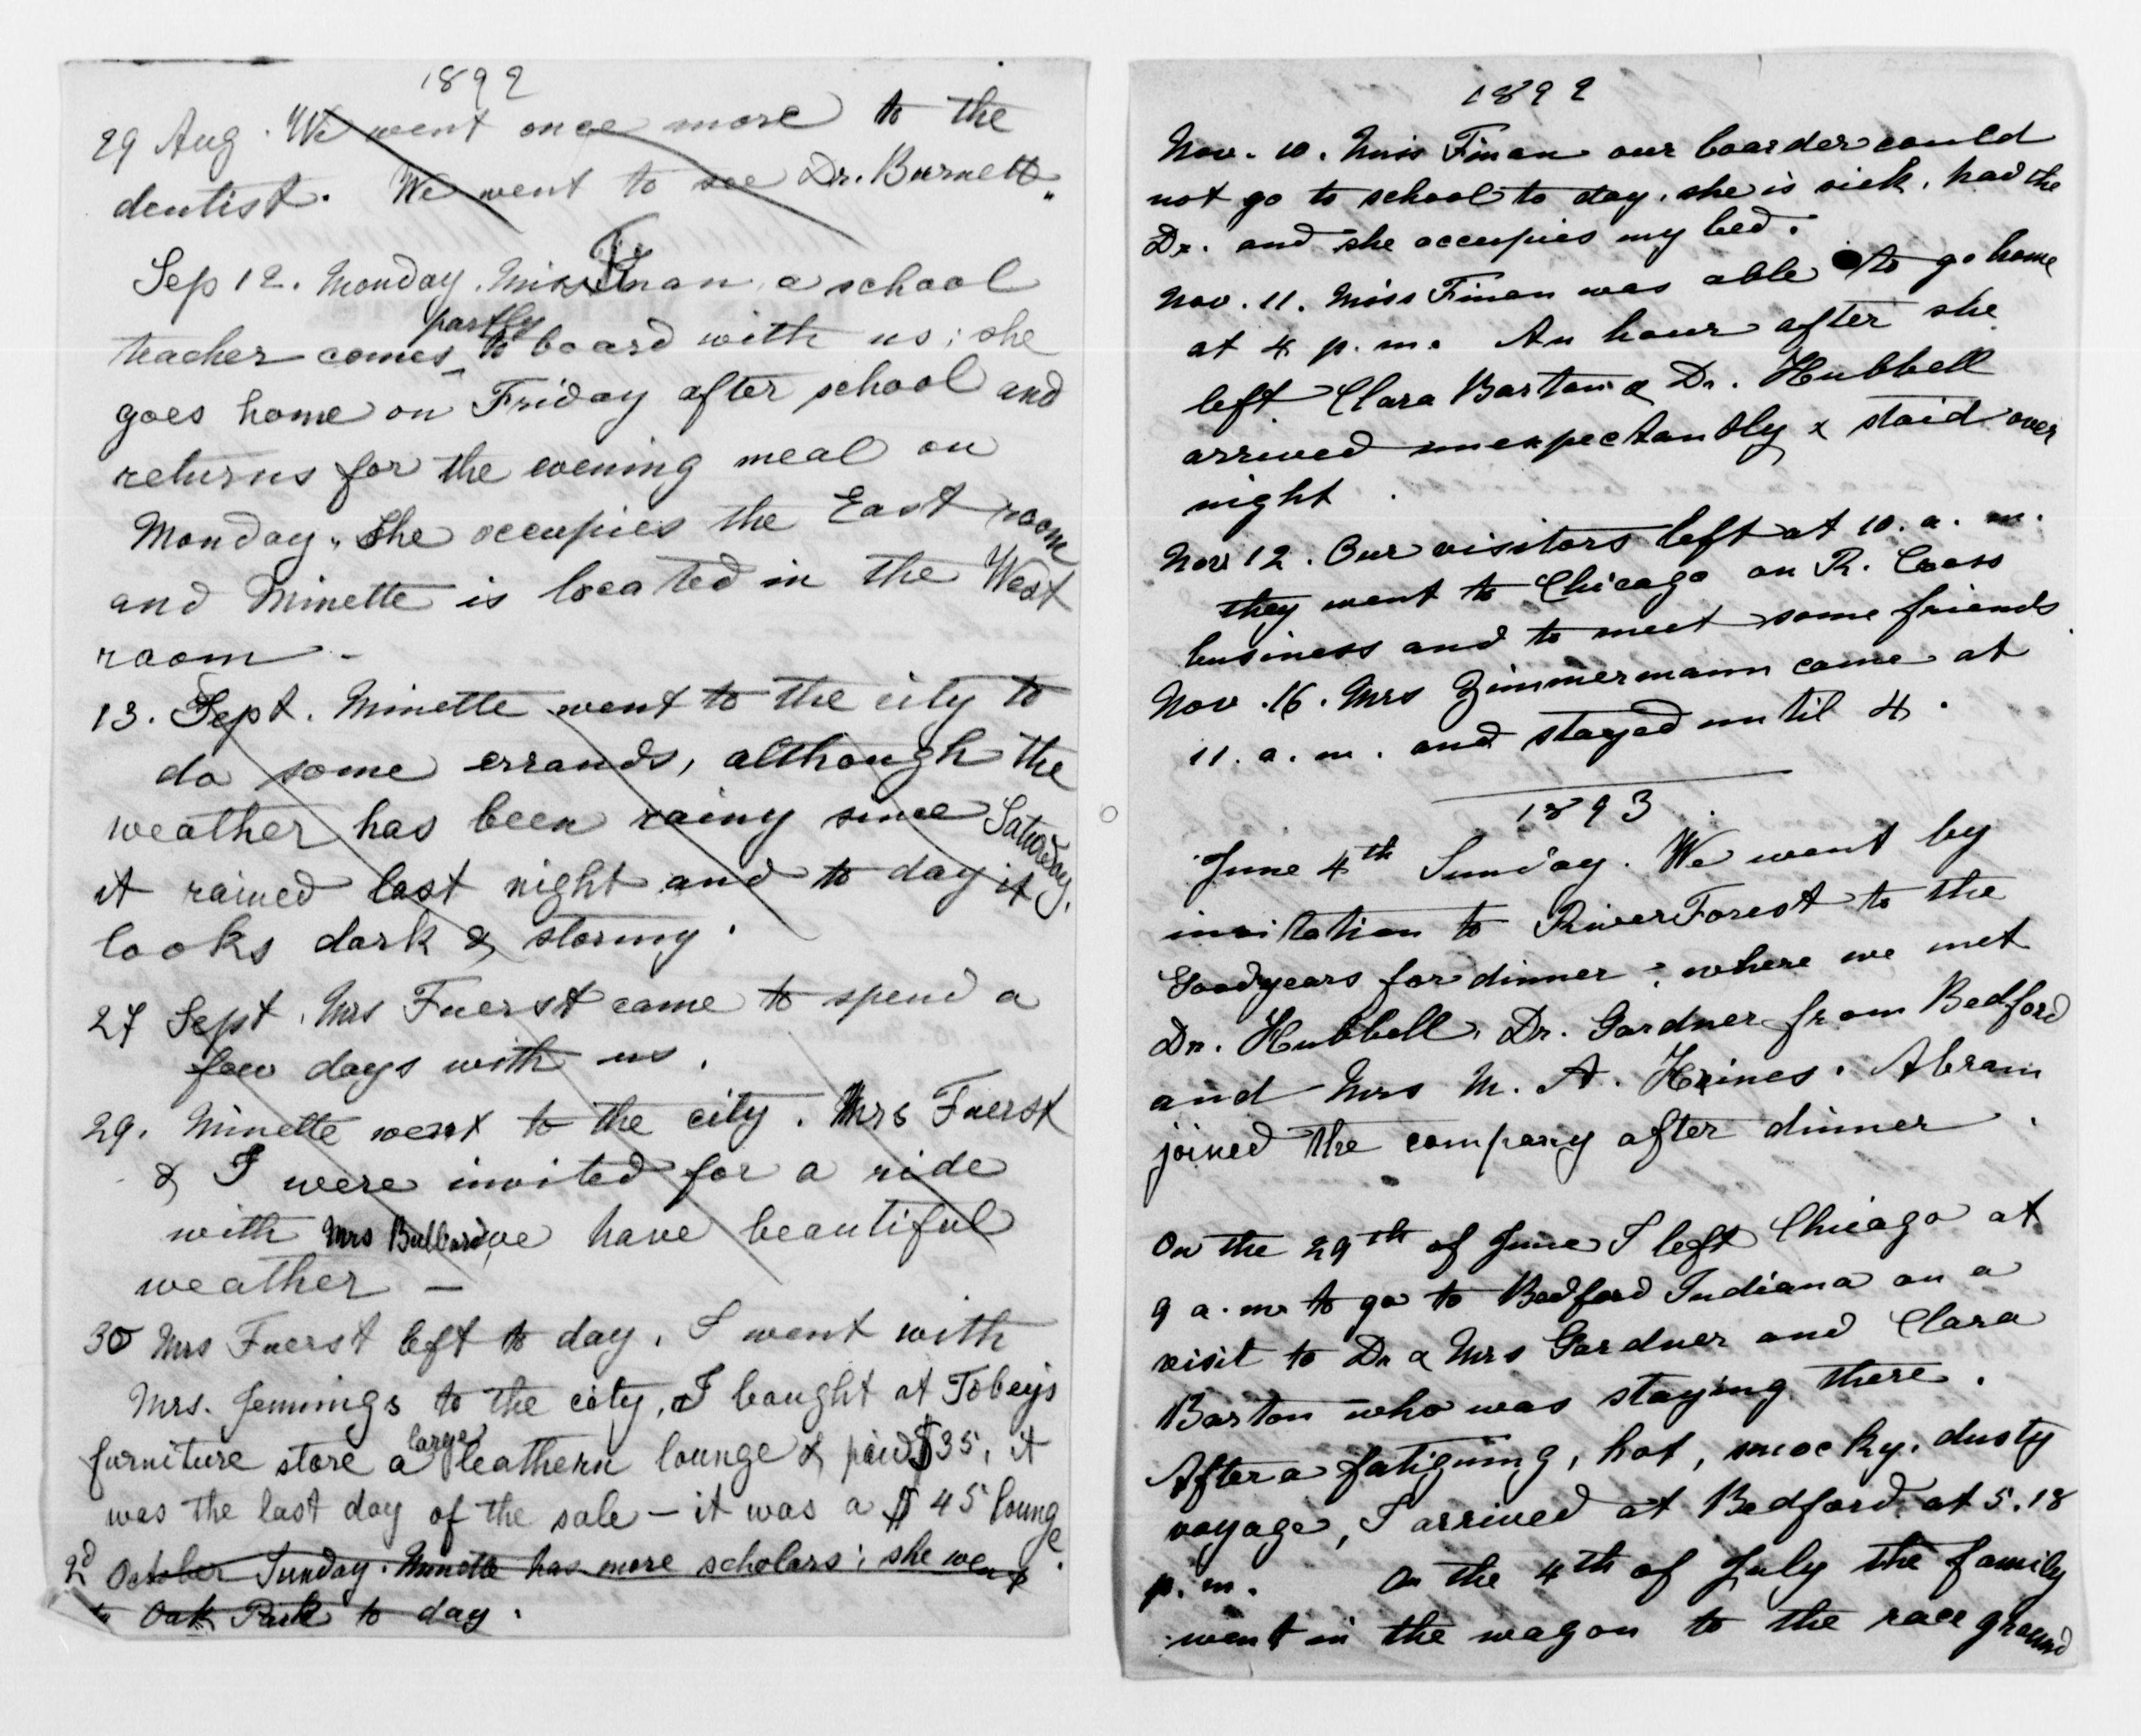 1892
29 Aug. We went once more to the
dentist. We went to see Dr. Burnett.
Sep 12. Monday. Miss Finan, a school
partly
teacher comes to board with us; she
goes home on Friday after school and
returns for the evening meal on
Monday. She occupies the East room
and Minette is located in the West
room -
13. Sept. Minette went to the city to
do some errands, although the
weather has been rainy since Saturday,
it rained last night and to day it
looks dark & stormy.
27 Sept. Mrs Fuerst came to spend a
few days with us.
29. Minette went to the city. Mrs Fuerst
& I were invited for a ride
with Mrs Bullard, we have beautiful
weather —
30 Mrs Fuerst left to day. I went with
Mrs. Jennings to the city, I bought at Tobeys
large
furniture store a leathern lounge & paid $35, it
was the last day of the sale — it was a $45 lounge.
2d October Sunday. Minette has more scholars; she went
to Oak Park to day.
1892
Nov. 10. Miss Finan our boarder could
not go to school to day, she is sick, had the
Dr. and she occupies my bed.
Nov. 11. Miss Finan was able to go home
at 4 p.m. An hour after she
left Clara Barton & Dr. Hubbell
arrived unexpectantly & staid over
night.
Nov 12. Our visitors left at 10. a. m.
they went to Chicago on R. Cross
business and to meet some friends
Nov. 16. Mrs Zimmermann came at
11. a. m. and stayed until 4.
1893
June 4th Sunday. We went by
invitation to River Forest to the
Goodyears for dinner; where we met
Dr. Hubbell, Dr. Gardner from Bedford
and Mrs M. A. Heines. Abram
joined the company after dinner.
On the 29th of June I left Chicago at
9 a.m. to go to Bedford Indiana on a
visit to Dr & Mrs Gardner and Clara
Barton who was staying there.
After a fatiguing, hot, smocky, dusty
voyage, I arrived at Bedford at 5.18
p.m. On the 4th of July the family
went in the wagon to the race ground